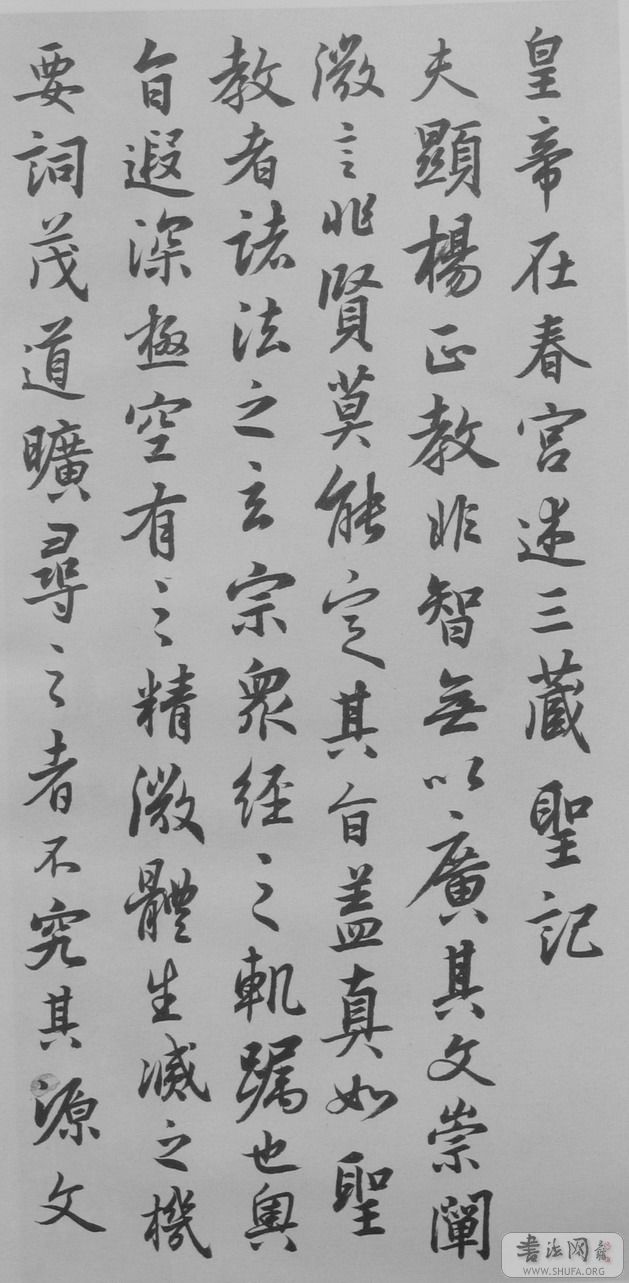 皇帝在春宫述三藏聖記
夫顯楊正教非智無以廣其文崇闡
微言非賢莫能定其旨盖真如聖
教者諸法之玄宗衆經之軌躅也奥
旨遐深極空有之精微體生滅之機
要詞茂道曠尋之者不究其源文
書法网
WWW.SHUFA.ORG